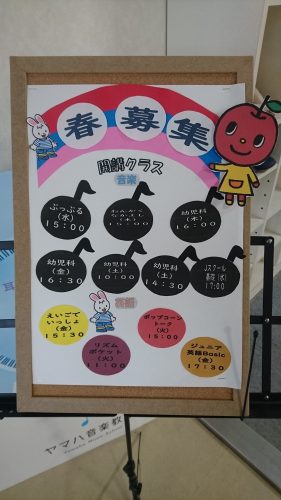 春募集
開講クラス
音楽
ぷっぷる
(水)
15:00
15:00
幼児科
(木)
16:00
幼児科
(金)
16:30
幼児科
(土)
10:00
幼児科
(土)
14:30
Jスクール
基礎(水)
17:00
英語
えいごで
いっしょ
(金)
15:30
リズム
ポケット
(火)
11:00
ポップコーン
トーク
(火)
15:00
ジュニア
英語Basic
(金)
17:30
ヤマハ音楽教
Yamaha Music School